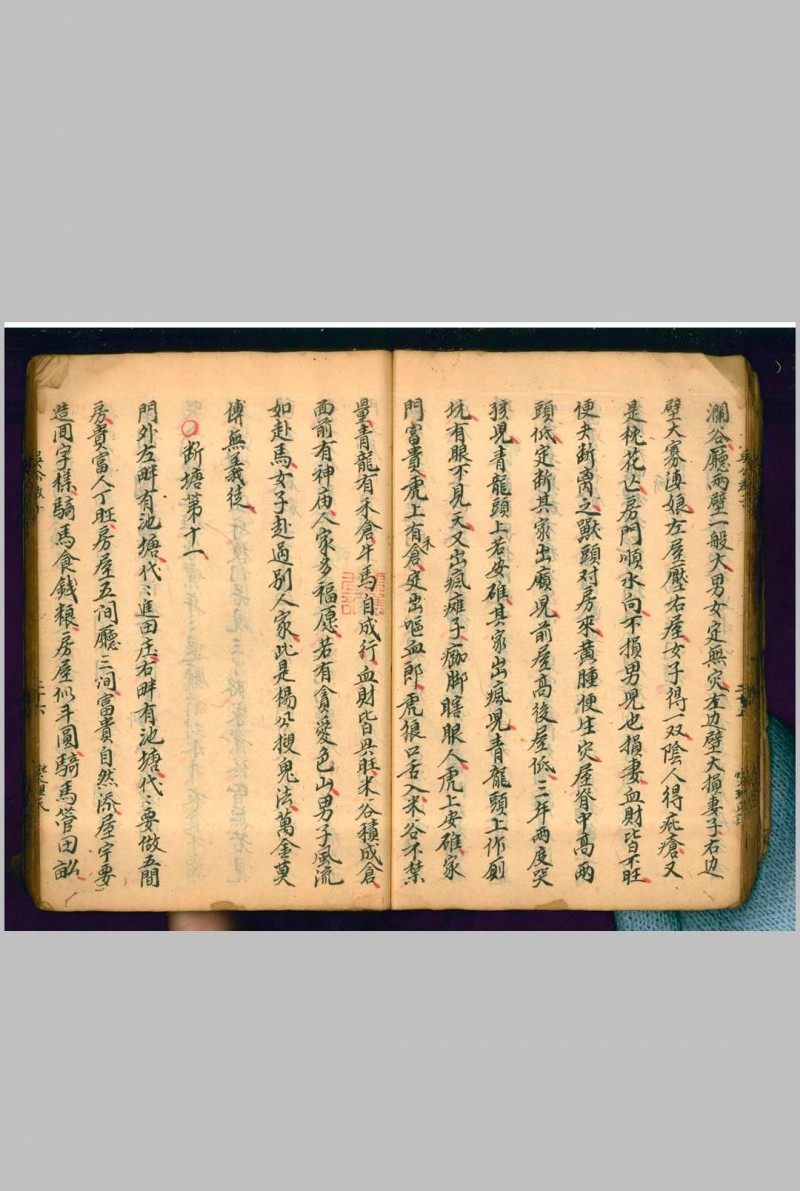 瀾谷廳兩壁一般大男女定無灾左边壁大損妻子右边
壁大寡滛娘左屋壓右屋女子得一双陰人得疕瘡又
是枕花亡房門順水向不損男児也損妻血財皆不旺
便夫断离之獸頭对房來黃腫便生灾屋脊中高兩
頭低定断其家出癩児前屋高後屋低三年兩度哭
孩児青龍頭上若安碓其家出瘋児青龍頭上作厠
坑有眼不見天又出瘋癱子痂脚瞎眼人虎上安碓家
門富貴虎上有禾倉定出嘔血郎虎狼口舌入米谷不禁
量青龍有禾倉牛馬自成行血財皆興旺米谷積成倉
面前有神庙人家多福愿若有貪愛色山男子風流
如赴馬女子赴過别人家此是楊公搜鬼法萬金莫
傳無義徒
○断塘第十一
門外左畔有池塘代〻進田庄右畔有池塘代〻要做五間
房貴富人丁旺房屋五间廳三间富貴自然添屋宇要
造同字樣騎馬食錢粮房屋似斗圓騎馬管田畆
二十六